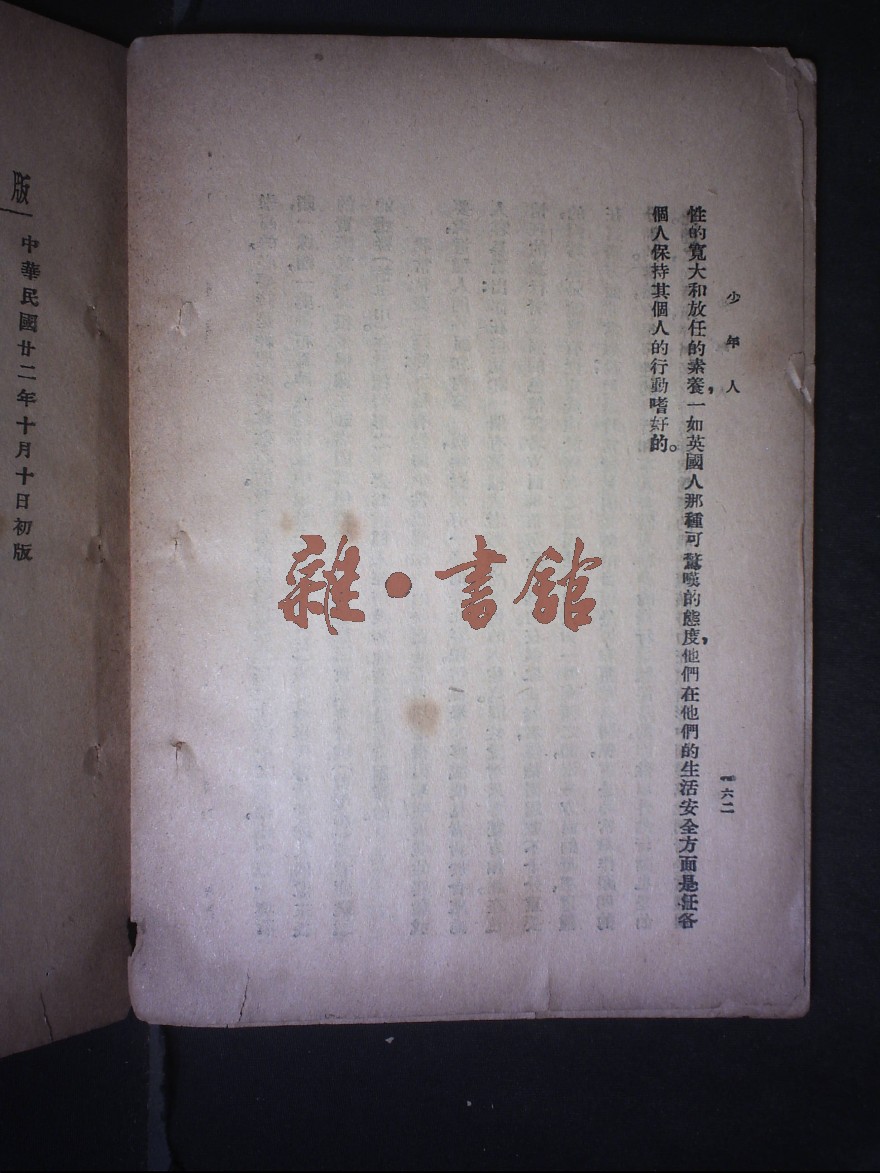 少年人
一六二
性的寬大和放任的素養，一如英國人那種可驚嘆的態度，他們在他們的生活安全方面是任各
個人保持其個人的行動嗜好的。
雜·書館
版
中華民國廿二年十月十日初版